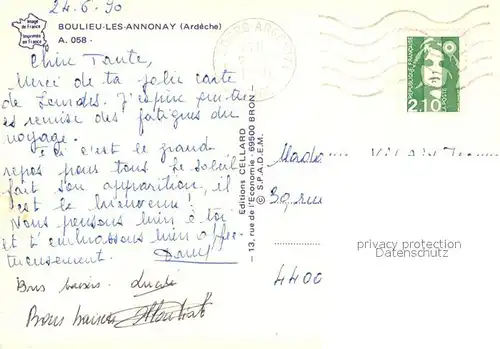 24.6.90
Image de France
Imprimée en France
BOULIEU-LES-ANNONAY (Ardèche)
A. 058 -
Chère Tante,
Merci de ta jolie carte
de Lourdes. J'espère que tu
es remise des fatigues du
voyage.
Ici c'est le grand
repos pour tous. Le soleil
fait son apparition, il
est le bienvenu !
Nous pensons bien à toi
et t'embrassons bien affec-
tueusement.
Bons baisers.
Bons baisers
Editions CELLARD
- 13, rue de l'Economie - 69500 BRON -
© S.P.A.D.E.M.
REPUBLIQUE FRANÇAISE
LA POSTE
2,10
Madame
30, rue
4400
privacy protection
Datenschutz